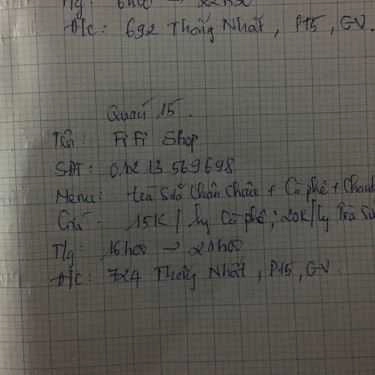 T/g: 6h00 → 22h30
Đ/C: 692 Thống Nhất, P15, GV.
Quán 15.
Tên: Fi Fi Shop
SĐT: 012 13 569698
Menu: trà Sữa Chân Châu + Cà phê + Chanh
Giá: 15K / ly Cà phê; 20K/ly Trà Sữ
T/g: 16h00 → 21h00
Đ/C: 724 Thống Nhất, P15, GV.